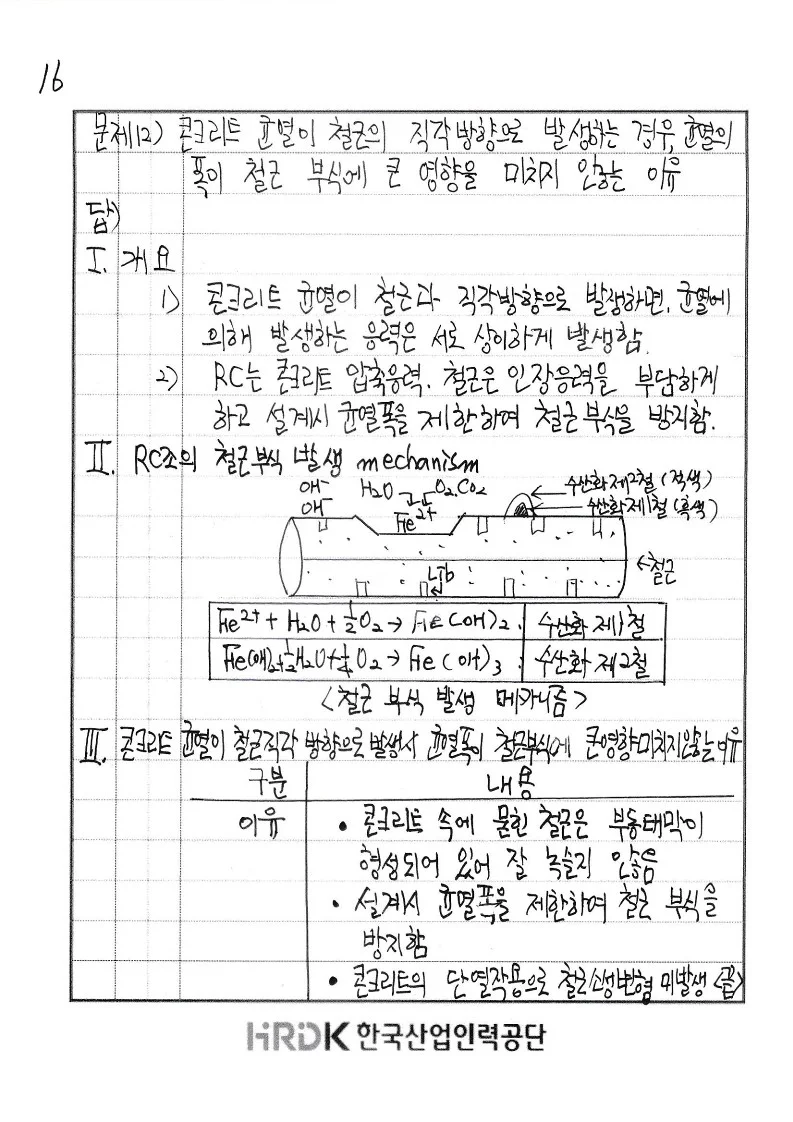 16
문제12) 콘크리트 균열이 철근의 직각방향으로 발생하는 경우, 균열의
폭이 철근 부식에 큰 영향을 미치지 않는 이유
답)
I. 개요
1) 콘크리트 균열이 철근과 직각방향으로 발생하면, 균열에
의해 발생하는 응력은 서로 상이하게 발생함.
2) RC는 콘크리트 압축응력, 철근은 인장응력을 부담하게
하고 설계시 균열폭을 제한하여 철근부식을 방지함.
II. RC조의 철근부식 발생 mechanism
OH⁻ H₂O O₂, CO₂ 수산화제2철 (적색)
OH⁻ Fe²⁺ 수산화제1철 (흑색)
←철근
Fe²⁺ + H₂O + ½O₂ → Fe(OH)₂. 수산화 제1철
Fe(OH)₂+½H₂O+¼O₂ → Fe(OH)₃ 수산화 제2철
<철근 부식 발생 메카니즘>
III. 콘크리트 균열이 철근직각 방향으로 발생시 균열폭이 철근부식에 큰영향미치지않는이유
구분 내용
이유 • 콘크리트 속에 묻힌 철근은 부동태막이
형성되어 있어 잘 녹슬지 않음
• 설계시 균열폭을 제한하여 철근 부식을
방지함
• 콘크리트의 단열작용으로 철근소성변형 미발생 <끝>
HRDK 한국산업인력공단